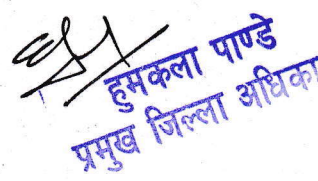 हुमकला पाण्डे
प्रमुख जिल्ला अधिका